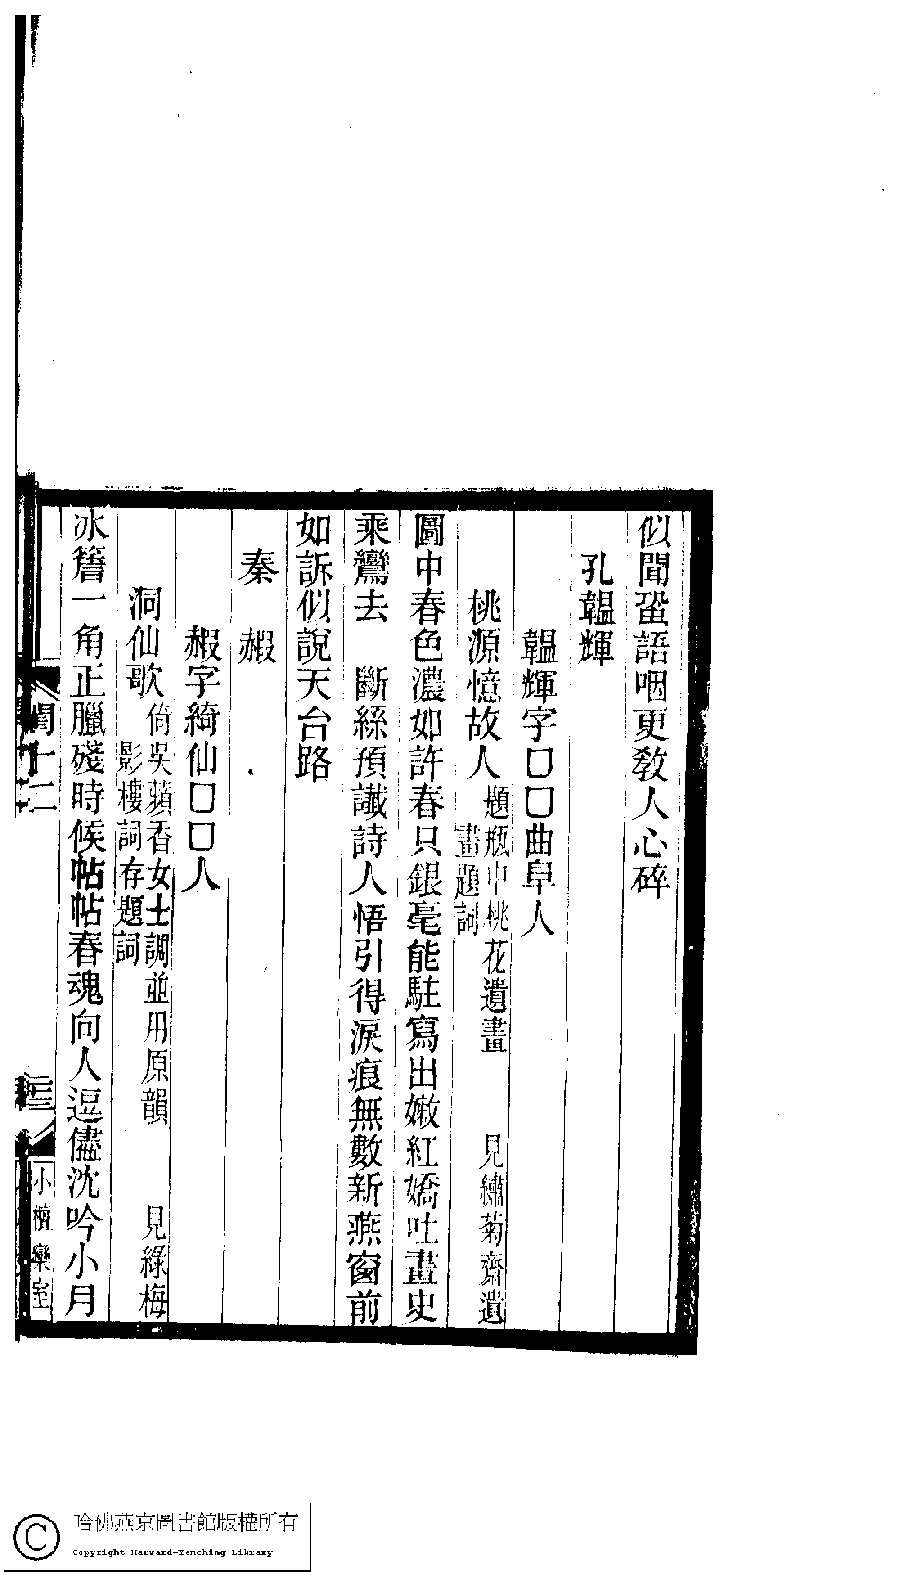 似聞蛩語咽更教人心碎
孔韞輝
韞輝字囗囗曲阜人
桃源憶故人題瓶中桃花遺畫　見繡菊齋遺
畫題詞
圖中春色濃如許春只銀毫能駐寫出嫩紅嬌吐畫史
乘鸞去　斷絲預讖詩人悟引得淚痕無數新燕窗前
如訴似說天台路
秦　嘏
嘏字綺仙囗囗人
洞仙歌倚吳蘋香女士調並用原韻　見綠梅
影樓詞存題詞
冰簷一角正臘殘時候帖帖春魂向人逗儘沈吟小月
閨十二
三
小檀欒室
哈佛燕京圖書館版權所有
Copyright Harvard-Yenching Library